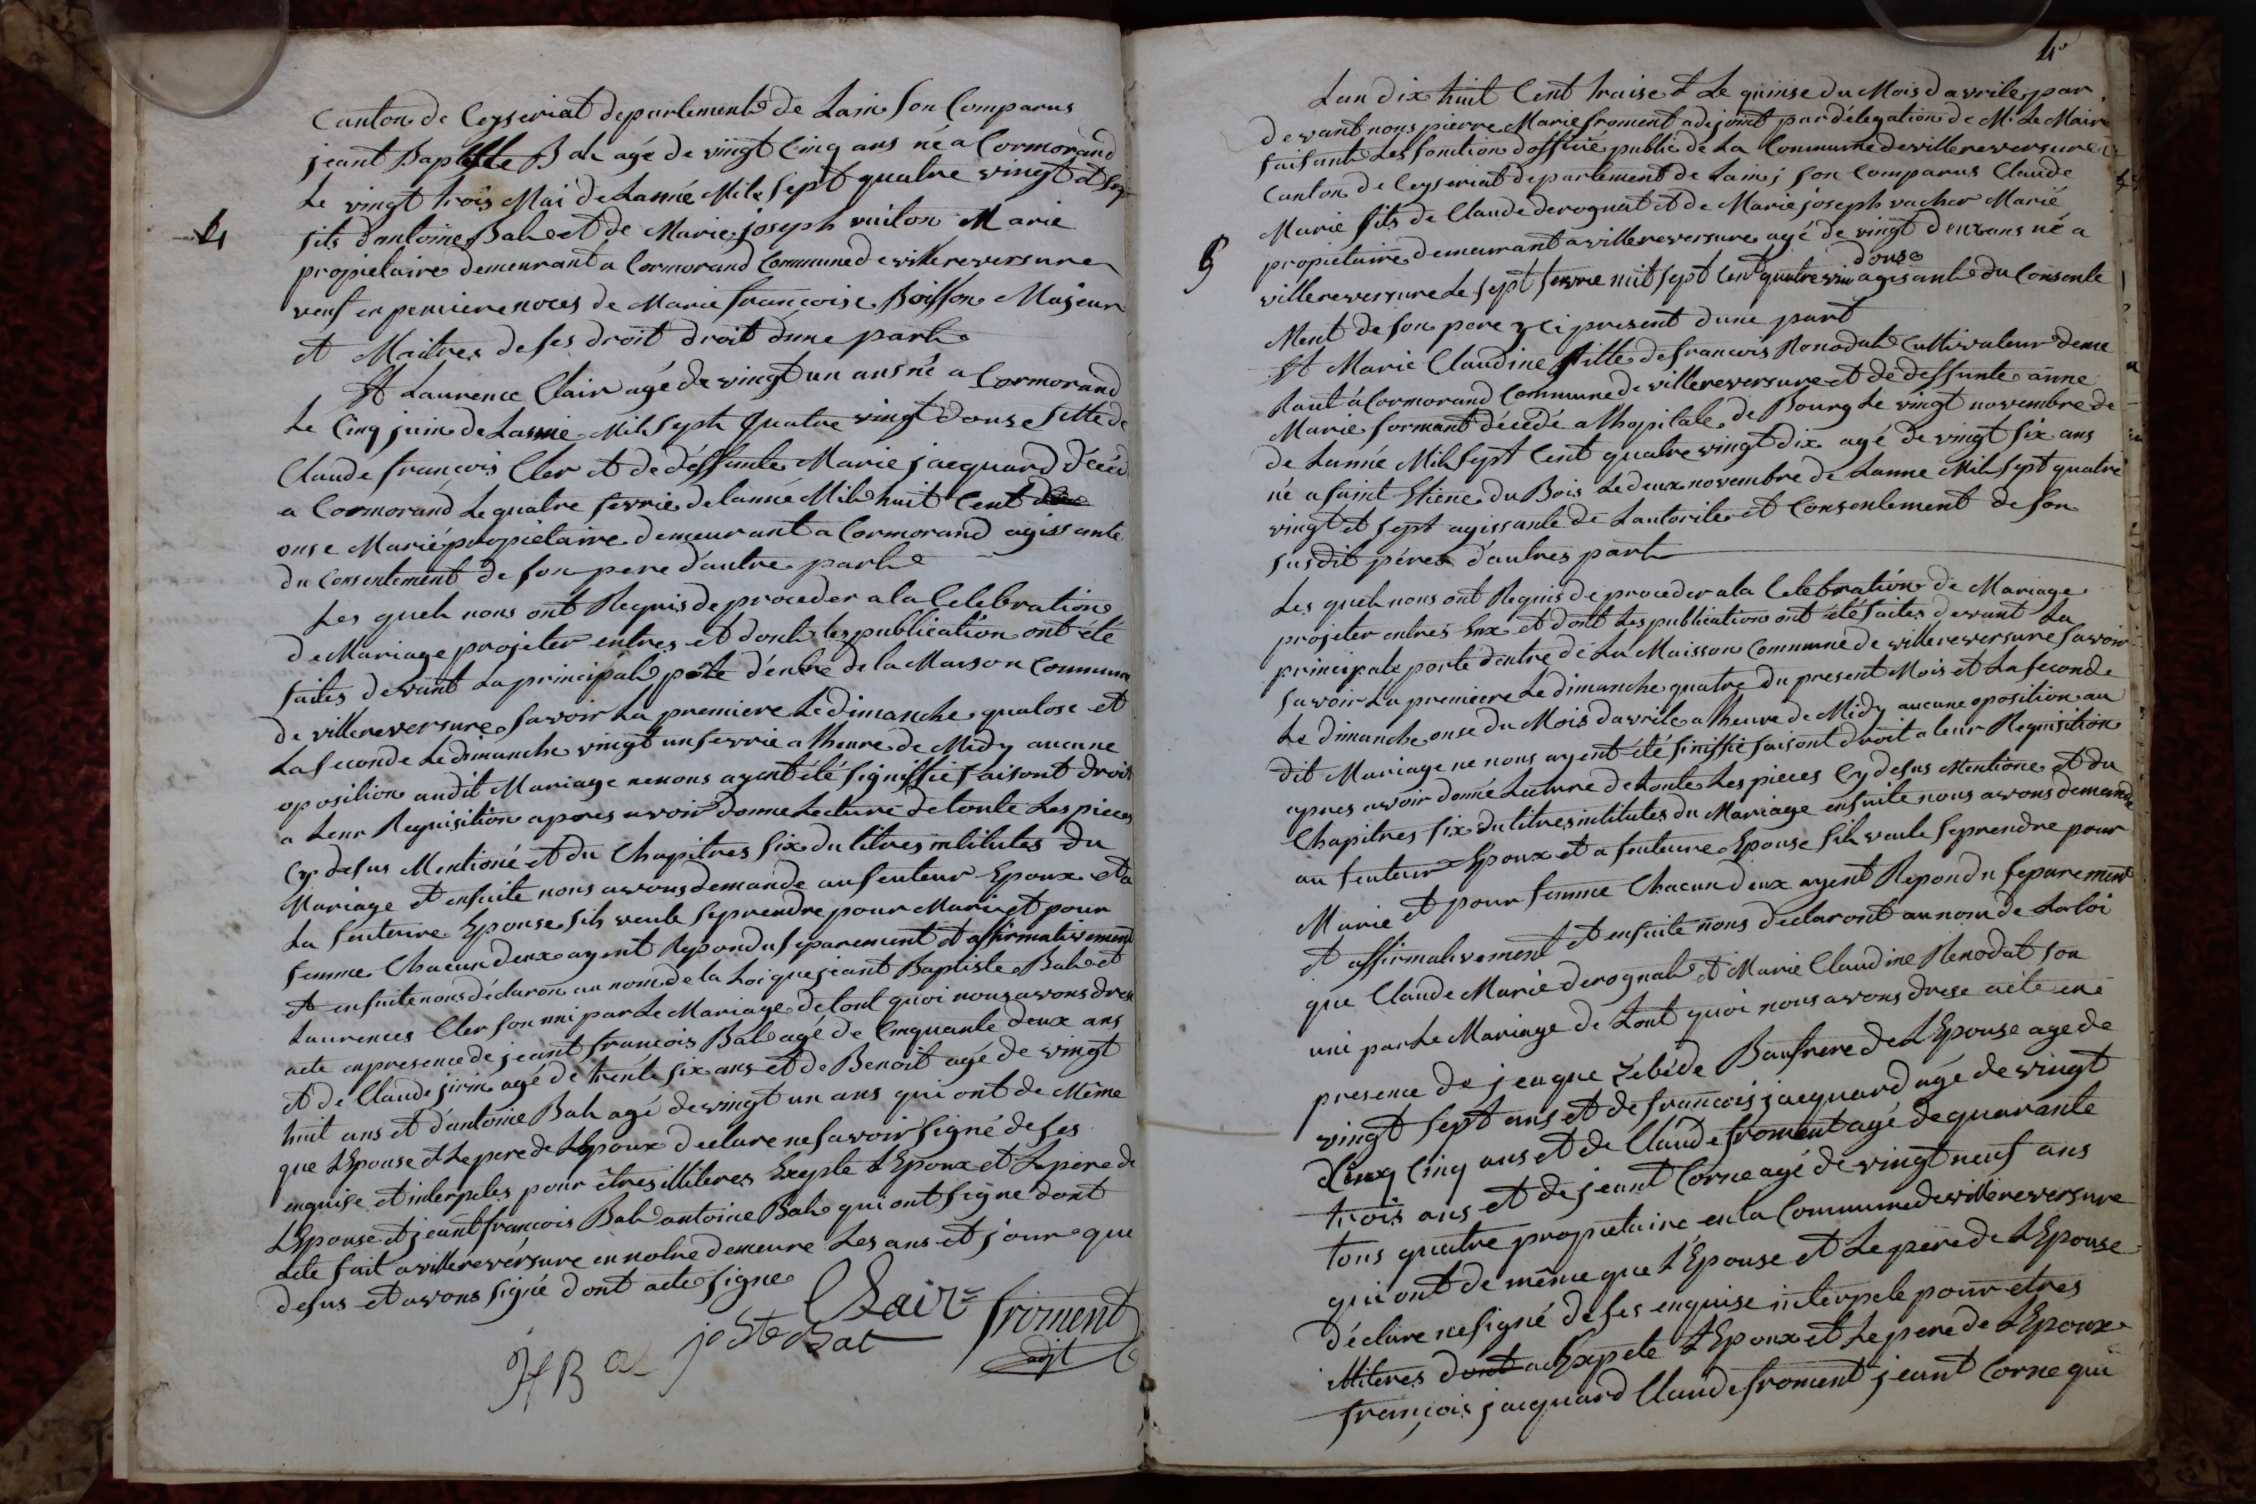 Canton de Ceyseriat departement de Lain son Comparus
jeant Baptiste Bah agé de vingt Cinq ans né a Cormorand
Le vingt trois Mai de Lannée Mil Sept quatre vingt et sept
4
fils dantoine Bah et de Marie joseph vuiton Marie
propietaire demeurant a Cormorand Commune de villereversure
veuf en pemiere noces de Marie françoise Boisson Majeur
et Maitres de ses droit droit dune part
Et Laurence Clair agé de vingt un ans né a Cormorand
Le Cinq juin de Lannée Mil Sept Quatre vingt douse fille de
Claude françois Cler et de déffunte Marie jacquard décéd
a Cormorand Le quatre fevrie de lannée Mil huit Cent
onse Marié propietaire demeurant a Cormorand agissante
du Consentement de son pere d'autre part
Les queh nous ont Requis de proceder a la Celebration
de Mariage projeter entres et dont les publication ont été
faites devant La principale pote d'entre de la Maison Commune
de villereversure savoir La premiere Le dimanche quatose et
La seconde Le dimanche vingt un fevrie a lheure de Midy aucune
oposition audit Mariage ne nous ayent été signiffié faisont droit
a Leur Requisition apres avoir donne Lecture de toute Les pieces
Cy desus Mentioné et du Chapitres six du titres intitutes du
Mariage et ensuite nous avons demande au feuteur Epoux et a
La feuteure Epouse sih veule seprendre pour Mari et pour
femme Chacun deux ayent Repondu séparement et affirmativement
et ensuite nous déclaron au nom de la Loi que jeant Baptiste Bah et
Laurences Cler son uni par Le Mariage de tout quoi nous avons drese
acte en presence de jeant françois Bah agé de Cinquante deux ans
et de Claude jirin agé de trente six ans et de Benoit agé de vingt
huit ans et d'antoine Bah agé de vingt un ans qui ont de Même
que LEpouse et Le pere de LEpoux declare ne savoir signé de ses
enquise et interpeles pour êtres illiteres Exepte LEpoux et Le pere de
LEpouse et jeant françois Bah antoine Bah qui ont signe dont
acte fait a villereversure en notre demeure Les ans et jour que
desus et avons signé dont acte signe
Clair froment
jo Ste Bat adjt
JfBa
4e
Lan dix huit Cent traise et Le quinse du Mois davrile par
devant nous pierre Marie froment adejoint par délegation de Mr Le Maire
faisant Les fonction doffisié public de La Commune de villereversure
Canton de Ceyseriat departement de Lain son Comparus Claude
Marie fils de Claude derognat et de Marie joseph vacher Marié
5
propietaire demeurant a villereversure agé de vingt deux ans né a
douse
villereversure Le sept fevrie mil sept Cent quatre vin agisante du Consente
Ment de son pere y ci present dune part
Et Marie Claudine fille de francois Renodat Cultivateur deme
Rant á Cormorand Commune de villereversure et de deffunte anne
Marie formant décédé a lhopitale de Bourg Le vingt novembre de
de Lannée Mil Sept Cent quatre vingt dix agé de vingt six ans
né a saint Etiene du Bois Le deux novembre de Lanne Mil Sept quatre
vingt et sept agissante de Lautorite et Consentement de son
susdit péres d'autres part
Les queh nous ont Requis de proceder a la Celebration de Mariage
projeter entres Eux et dont Les publication ont été faites devant La
principale porte dentre de La Maisson Commune de villereversure savoir
savoir La premiere Le dimanche quatre du present Mois et La seconde
Le dimanche onse du Mois davrile a lheure de Midy aucune oposition au
dit Mariage ne nous ayent été siniffié faisont droit a leur Requisition
apres avoir donné Lecture de toute Les pieces Cy desus Mentione et du
Chapitres six du titres intitutes du Mariage ensuite nous avons demande
au feuteur Epoux et a feuteure Epouse sih veule seprendre pour
Marie et pour femme Chacun deux ayent Repondu separement
et affirmativement et ensuite nous declaront au nom de La loi
que Claude Marie derognat et Marie Claudine Renodat son
uni par Le Mariage de tout quoi nous avons drese acte en
presence de jeaque Zébéde Baufrere de LEpouse age de
vingt sept ans et de francois jacquard agé de vingt
Cinq ans et de Claude froment agé de quarante
trois ans et de jeant Corne agé de vingt neuf ans
tous quatre propietaire en la Commune de villereversure
qui ont de même que LEpouse et Le pere de LEpouse
déclare ne signé de ses enquise interpele pour etres
illiteres dont a Exepete LEpoux et Le pere de LEpoux
françois jacquard Claude froment jeant Corne qui